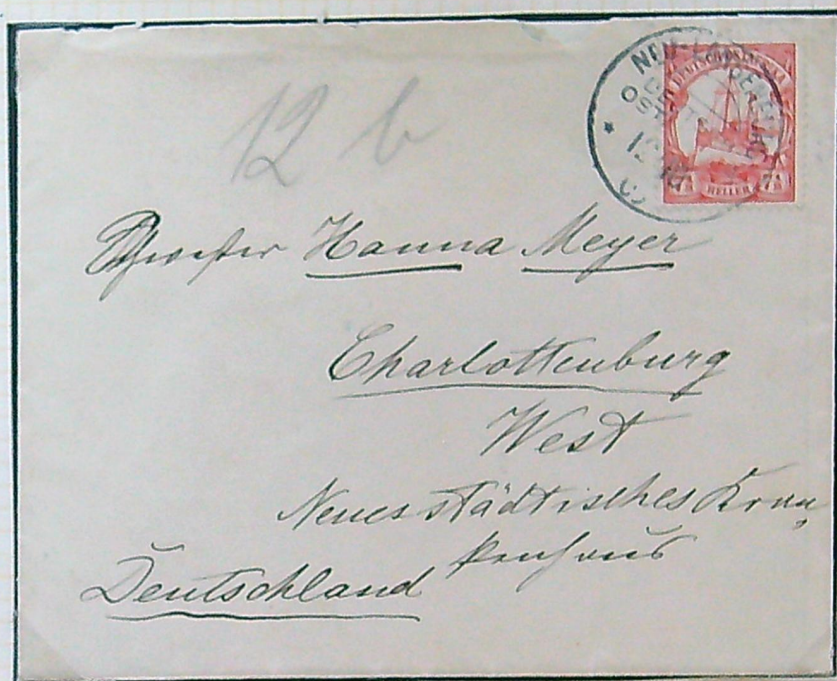 12 b
DEUTSCH-OSTAFRIKA
7½ HELLER 7½
Schwester Hanna Meyer
Charlottenburg
West
Neues städtisches Kran„
kenhaus
Deutschland